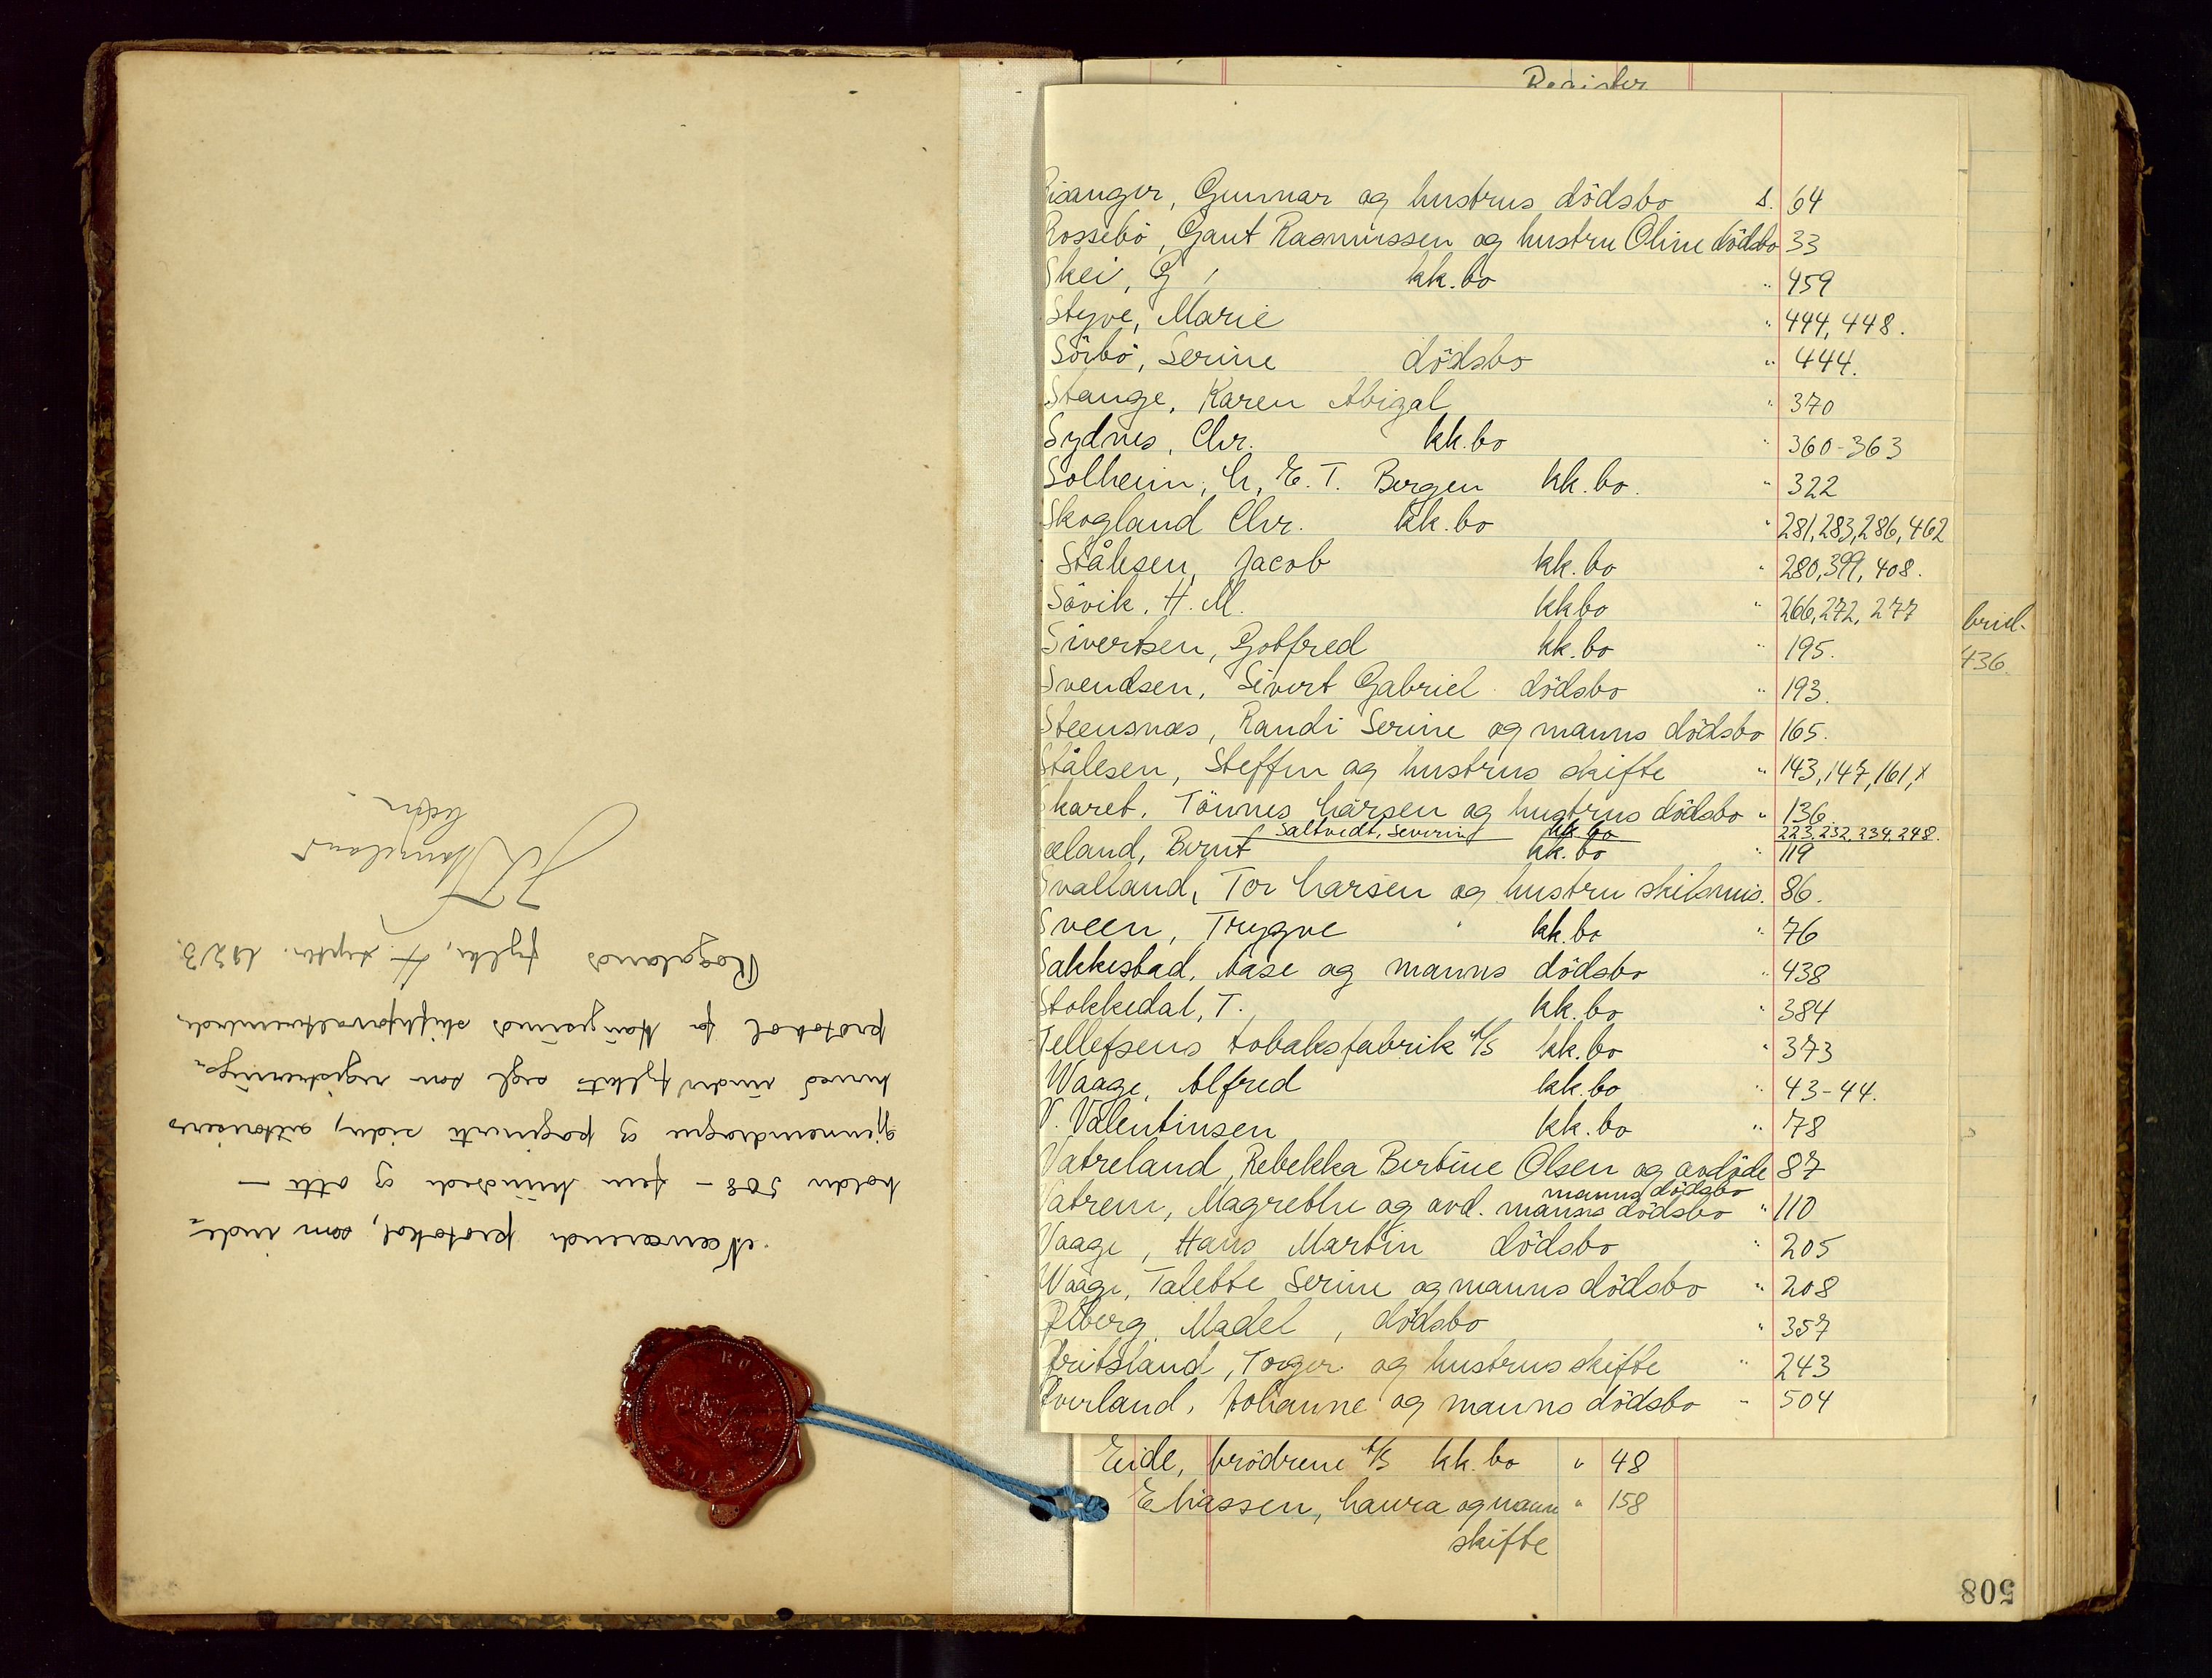 Nærværende protokol, som inde-
holder 508 - fem hundrede og otte -
gjennemdragne og paginerte sider, autoriseres
herved under fylkets segl som registrerings-
protokol for Haugesunds skifteforvalterembede.
Rogalands fylke, 4. septbr. 1923.
Register
Risanger, Gunnar og hustrus dödsbo s. 64
Rossebö, Gaut Rasmussen og hustru Oline dödsbo 33
Skei, G kk.bo " 459
Styve, Marie " 444, 448.
Sörbö, Serine dödsbo " 444.
Stange, Karen Abigal " 370
Sydnes, Chr. kk.bo " 360-363
Solheim, L. E. T. Bergen kk.bo. " 322
Skogland Chr. kk.bo " 281, 283, 286, 462
Stålesen, Jacob kk.bo " 280, 399, 408.
Sövik, H. M. kkbo " 266, 272, 277
Sivertsen, Gotfred kk.bo " 195.
Svendsen, Sivert Gabriel dödsbo " 193.
Steensnæs, Randi Serine og manns dödsbo 165.
Stålesen, Steffen og hustrus skifte " 143, 147, 161, x
Skaret, Tönnes Larsen og hustrus dödsbo " 136
Saltvedt, Severin kk.bo 223, 232, 234, 248.
eland, Bernt kk.bo " 119
Svalland, Tor Larsen og hustru skilsmis. 86.
Sveen, Trygve kk.bo " 76
Sakkestad, Aase og manns dödsbo " 438
Stokkedal, T. kk.bo " 384
Tellefsens tobaksfabrik A/S kk.bo " 373
Waage, Alfred kk.bo " 43-44.
V. Valentinsen kk.bo " 78
Vatreland, Rebekka Bertine Olsen og avdöde 87
manns dödsbo
Vatrem, Magrethe og avd. manns dödsbo " 110
Vaage, Hans Martin dödsbo " 205
Waage, Talette Serine og manns dödsbo " 208
Ølberg, Madel, dödsbo " 357
Øritsland, Torger og hustrus skifte " 243
Øverland, Johanne og manns dödsbo " 504
436.
Eide, brödrene A/S kk.bo " 48
Eliassen, Laura og mann " 158
skifte
508